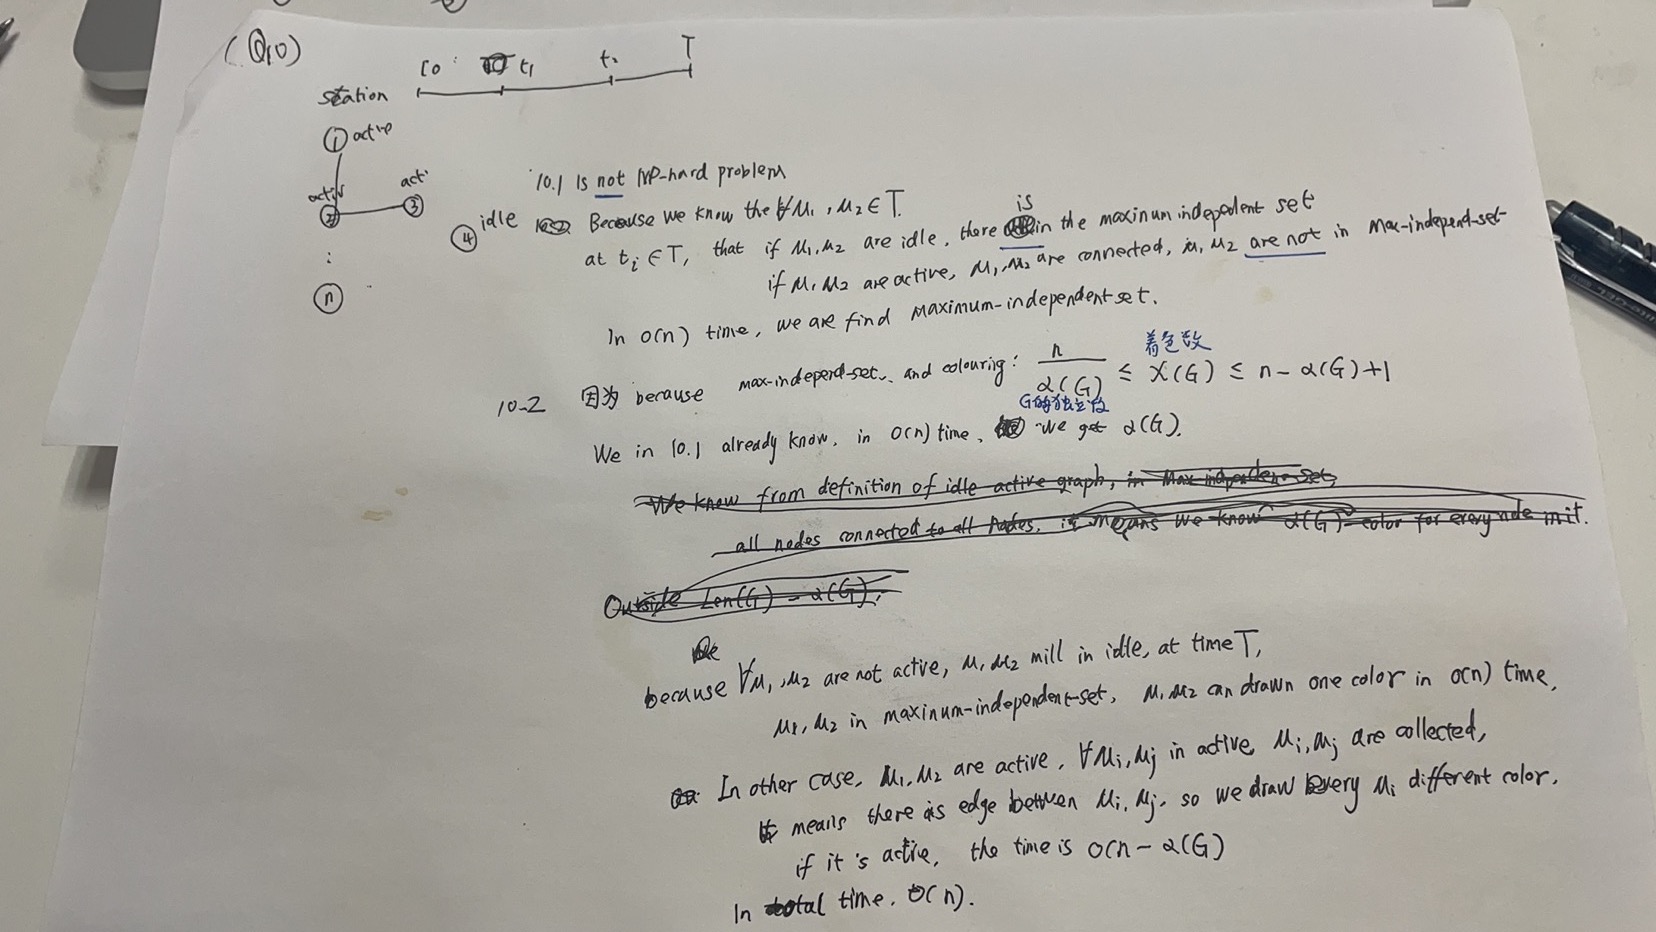 (Q10)
t0 t1 t2 T
station
1 active
active 2
acti 3
4 idle
:
n
10.1 Is not NP-hard problem
Because we know the ∀M1, M2 ∈ T.
at ti ∈ T, that if M1, M2 are idle, there is in the maxinum indepedent set
if M1, M2 are active, M1, M2 are connected, M1, M2 are not in Max-independ-set-
In O(n) time, we are find maximum-independent set.
10-2 因为 because max-independ-set, and colourig: n/α(G) ≤ χ(G) ≤ n-α(G)+1
着色数
G的独立数
We in 10.1 already know, in O(n) time, we get α(G).
We know from definition of idle active graph, in Max-independen-set,
all nodes connected to all nodes, it means we know α(G) color for every node in it.
Outside Len(G) - α(G),
because ∀M1, M2 are not active, M1, M2 mill in idle, at time T,
M1, M2 in maxinum-independent-set, M1, M2 can drawn one color in O(n) time,
In other case, M1, M2 are active, ∀Mi, Mj in active, Mi, Mj are collected,
It means there is edge between Mi, Mj, so we draw every Mi different color,
if it's active, the time is O(n-α(G)
In total time, O(n).